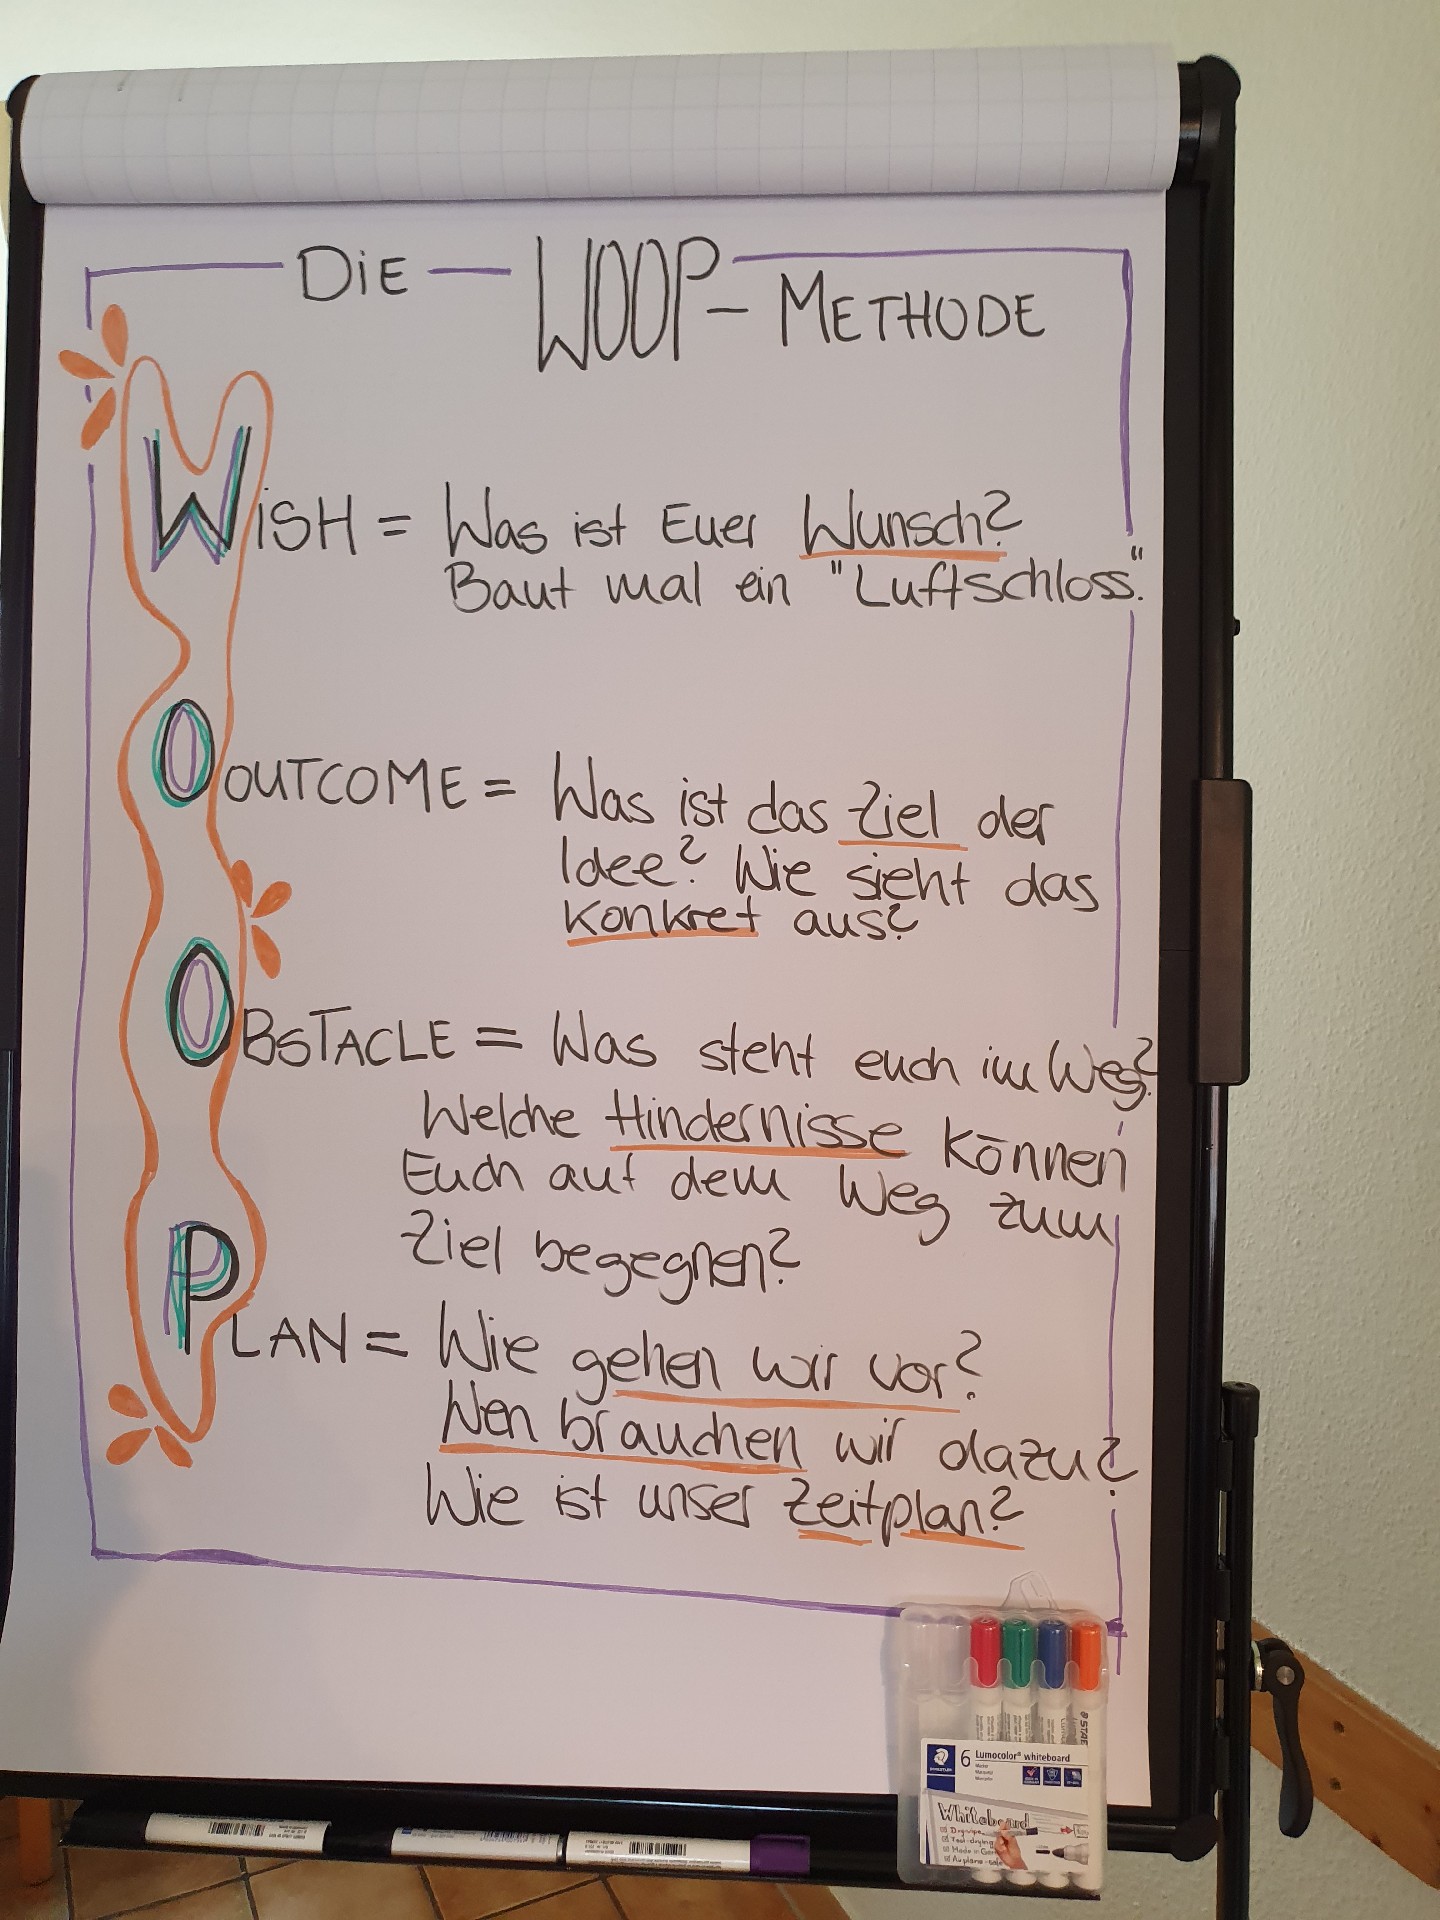 DIE WOOP-METHODE
WISH = Was ist Euer Wunsch?
Baut mal ein "Luftschloss".
OOUTCOME = Was ist das Ziel der
Idee? Wie sieht das
konkret aus?
OBSTACLE = Was steht euch im Weg?
Welche Hindernisse können
Euch auf dem Weg zum
Ziel begegnen?
PLAN = Wie gehen wir vor?
Wen brauchen wir dazu?
Wie ist unser Zeitplan?
STAEDTLER
6 Lumocolor® whiteboard
Whiteboard
Dry-wipe
Fast-drying
Made in Ger
Airplane-safe